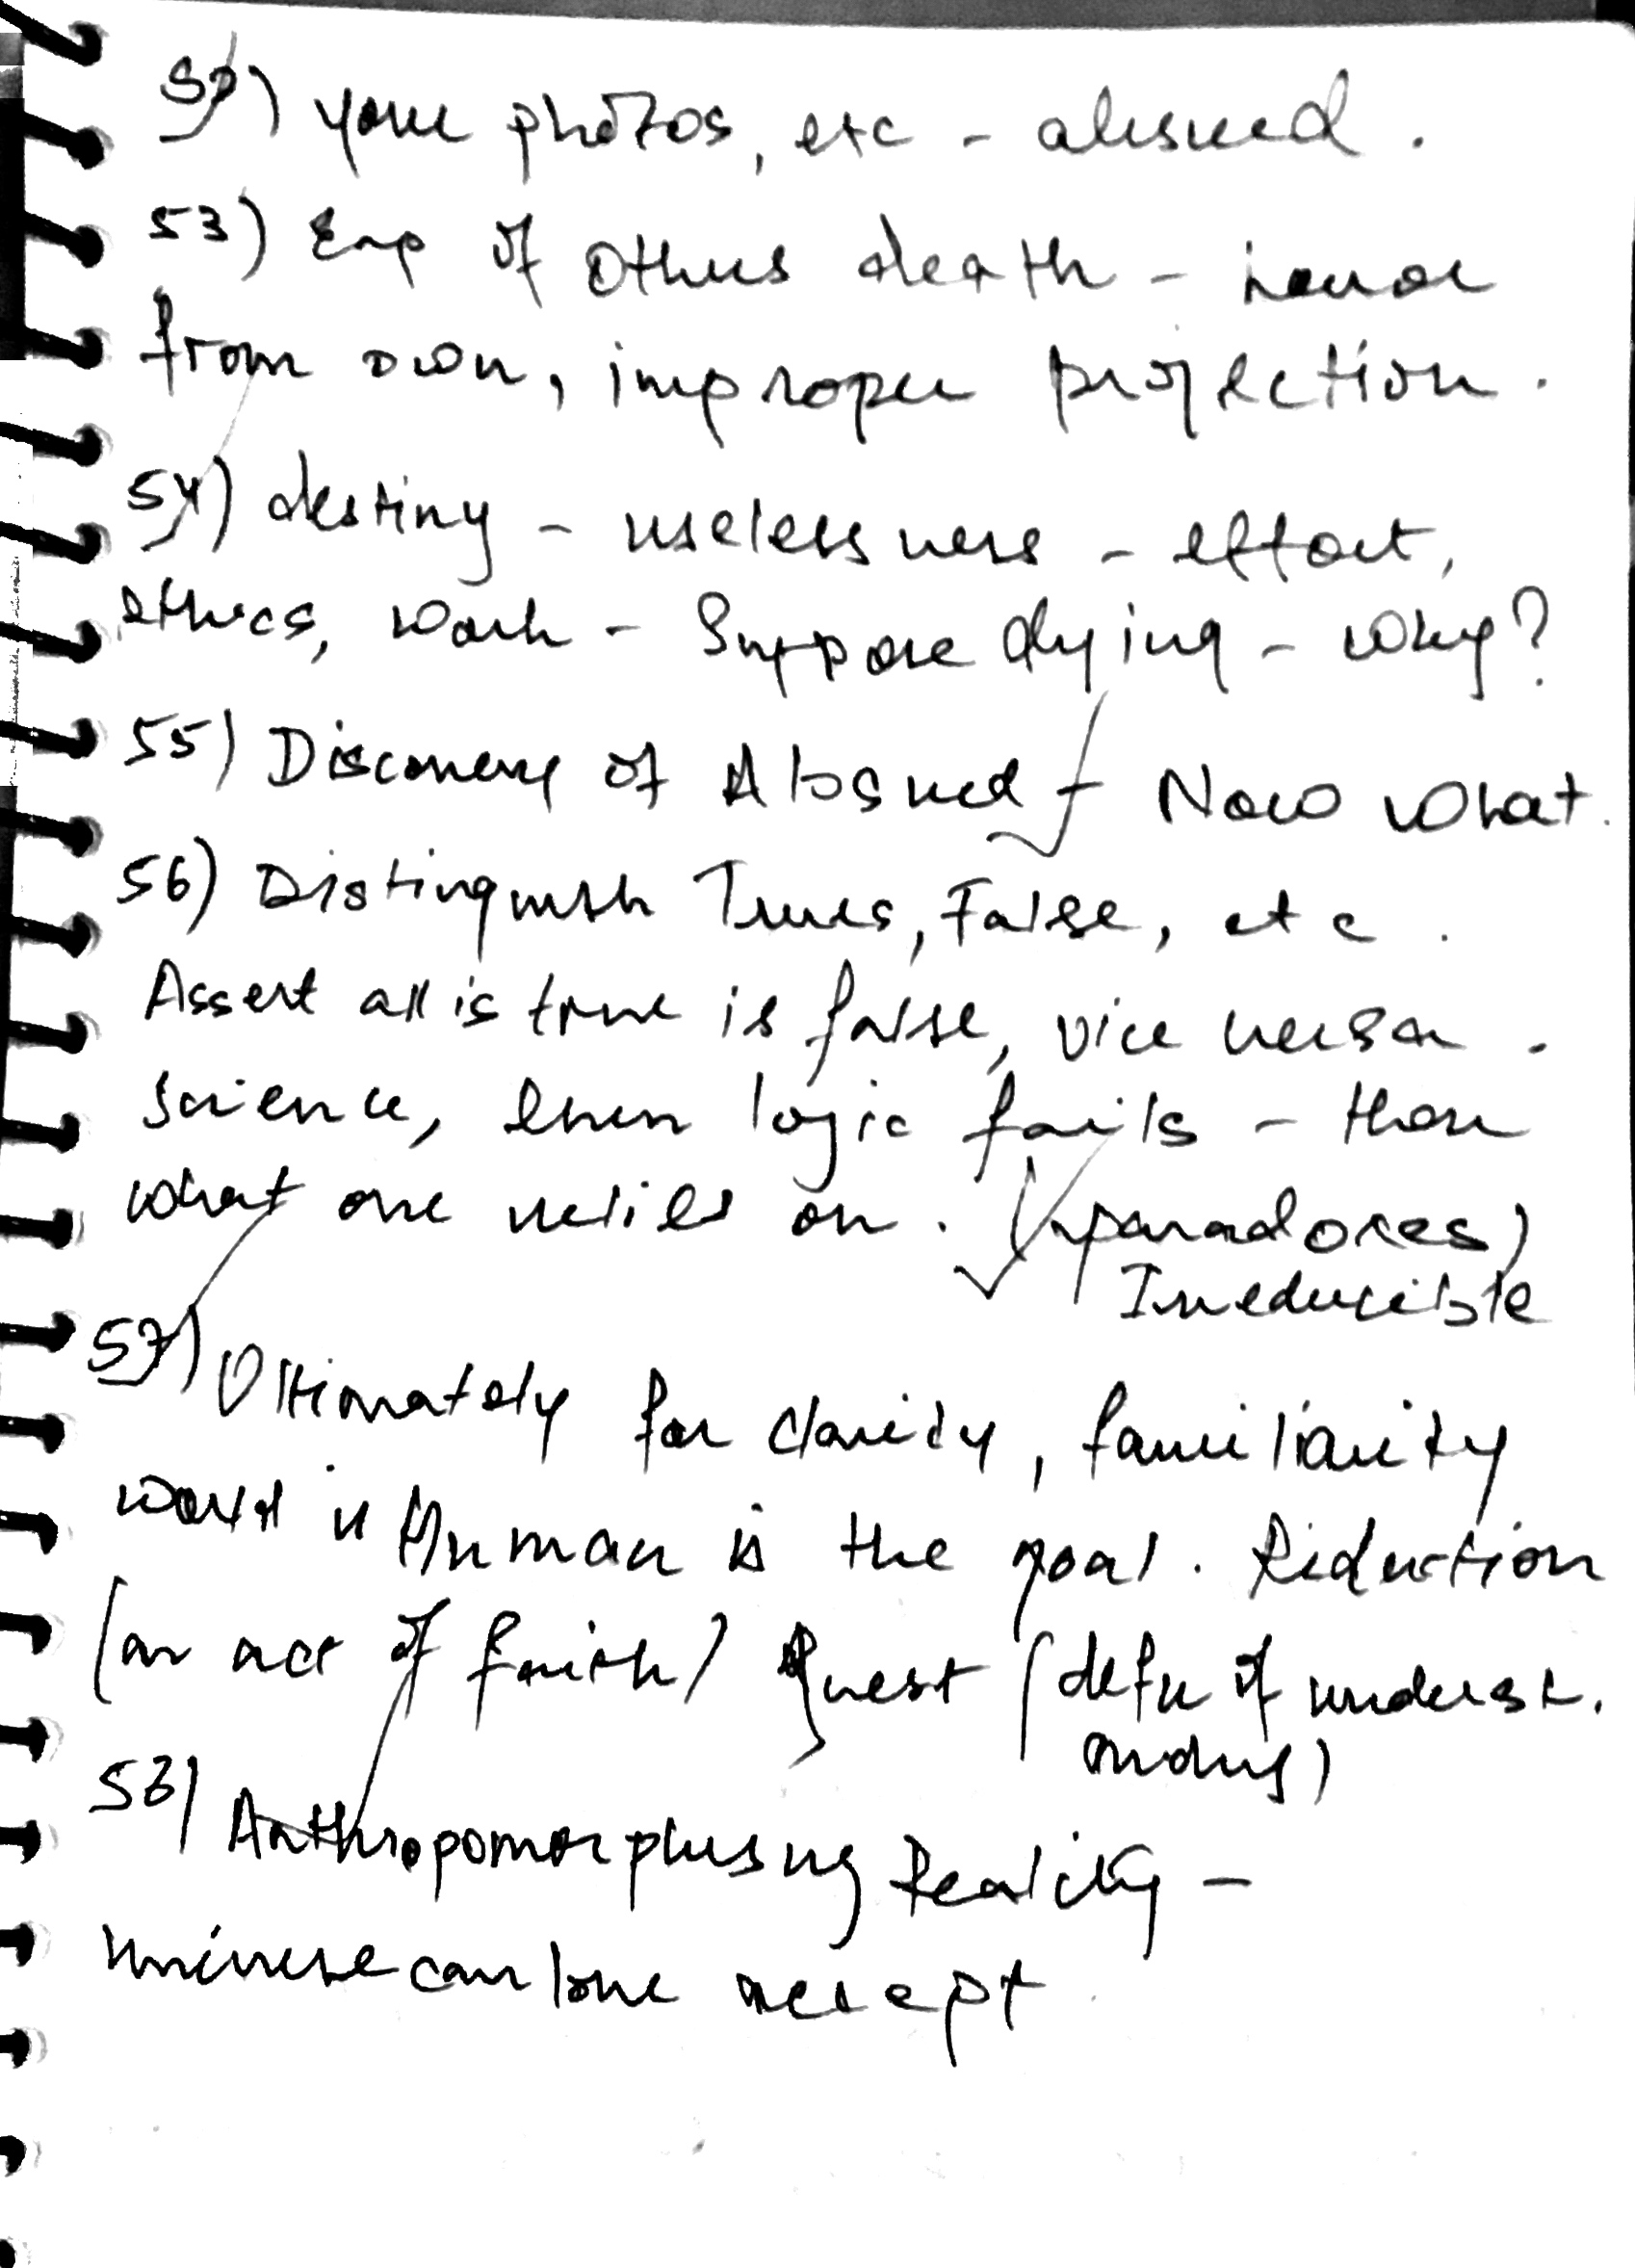 52) your photos, etc - absurd.
53) Exp of others death - horror
from own, improper projection.
54) destiny - uselessness - effort,
ethics, work - Suppose dying - why?
55) Discovery of Absurd - Now what.
56) Distinguish Trues, False, etc.
Assert all is true is false, vice versa.
Science, even logic fails - then
what one relies on. (paradoxes)
Irreducible
57) Ultimately for clarity, familiarity
world is Human is the goal. Reduction
(an act of faith) Quest (defn of underst.
anding)
58) Anthropomorphising Reality -
Universe can love accept